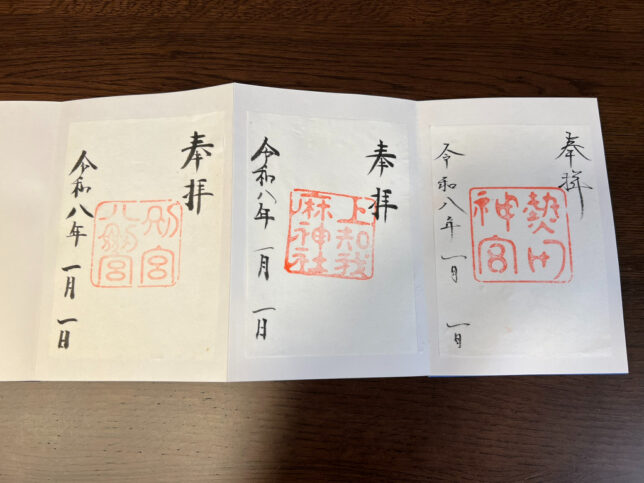 奉拝
熱田
神宮
令和八年一月一日
奉拝
上知我
麻神社
令和八年一月一日
奉拝
別宮
八剣宮
令和八年一月一日